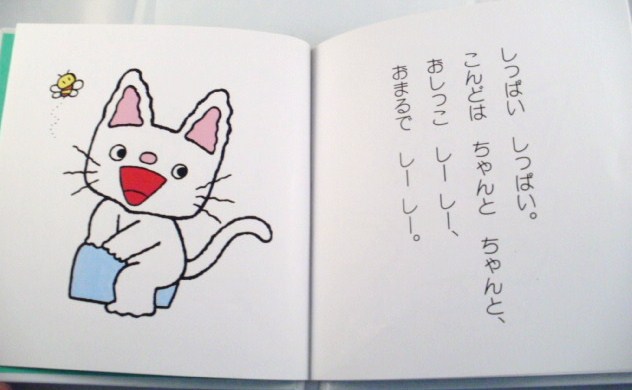 しっぱい　しっぱい。
こんどは　ちゃんと　ちゃんと、
おしっこ　しー　しー、
おまるで　しー　しー。